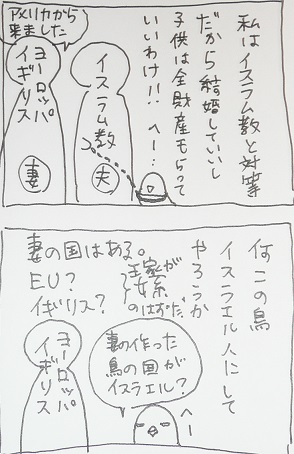 私はイスラム教と対等
だから結婚していいし
子供は全財産もらって
いいわけ!! へー…
アメリカから
来ました
イスラム教
夫
ヨーロッパ
イギリス
妻
何この鳥
イスラエル人にして
やろうか
妻の国はある。
EU?
イギリス?
王家が
女系
のはずだ。
妻の作った
鳥の国が
イスラエル?
へー
ヨーロッパ
イギリス